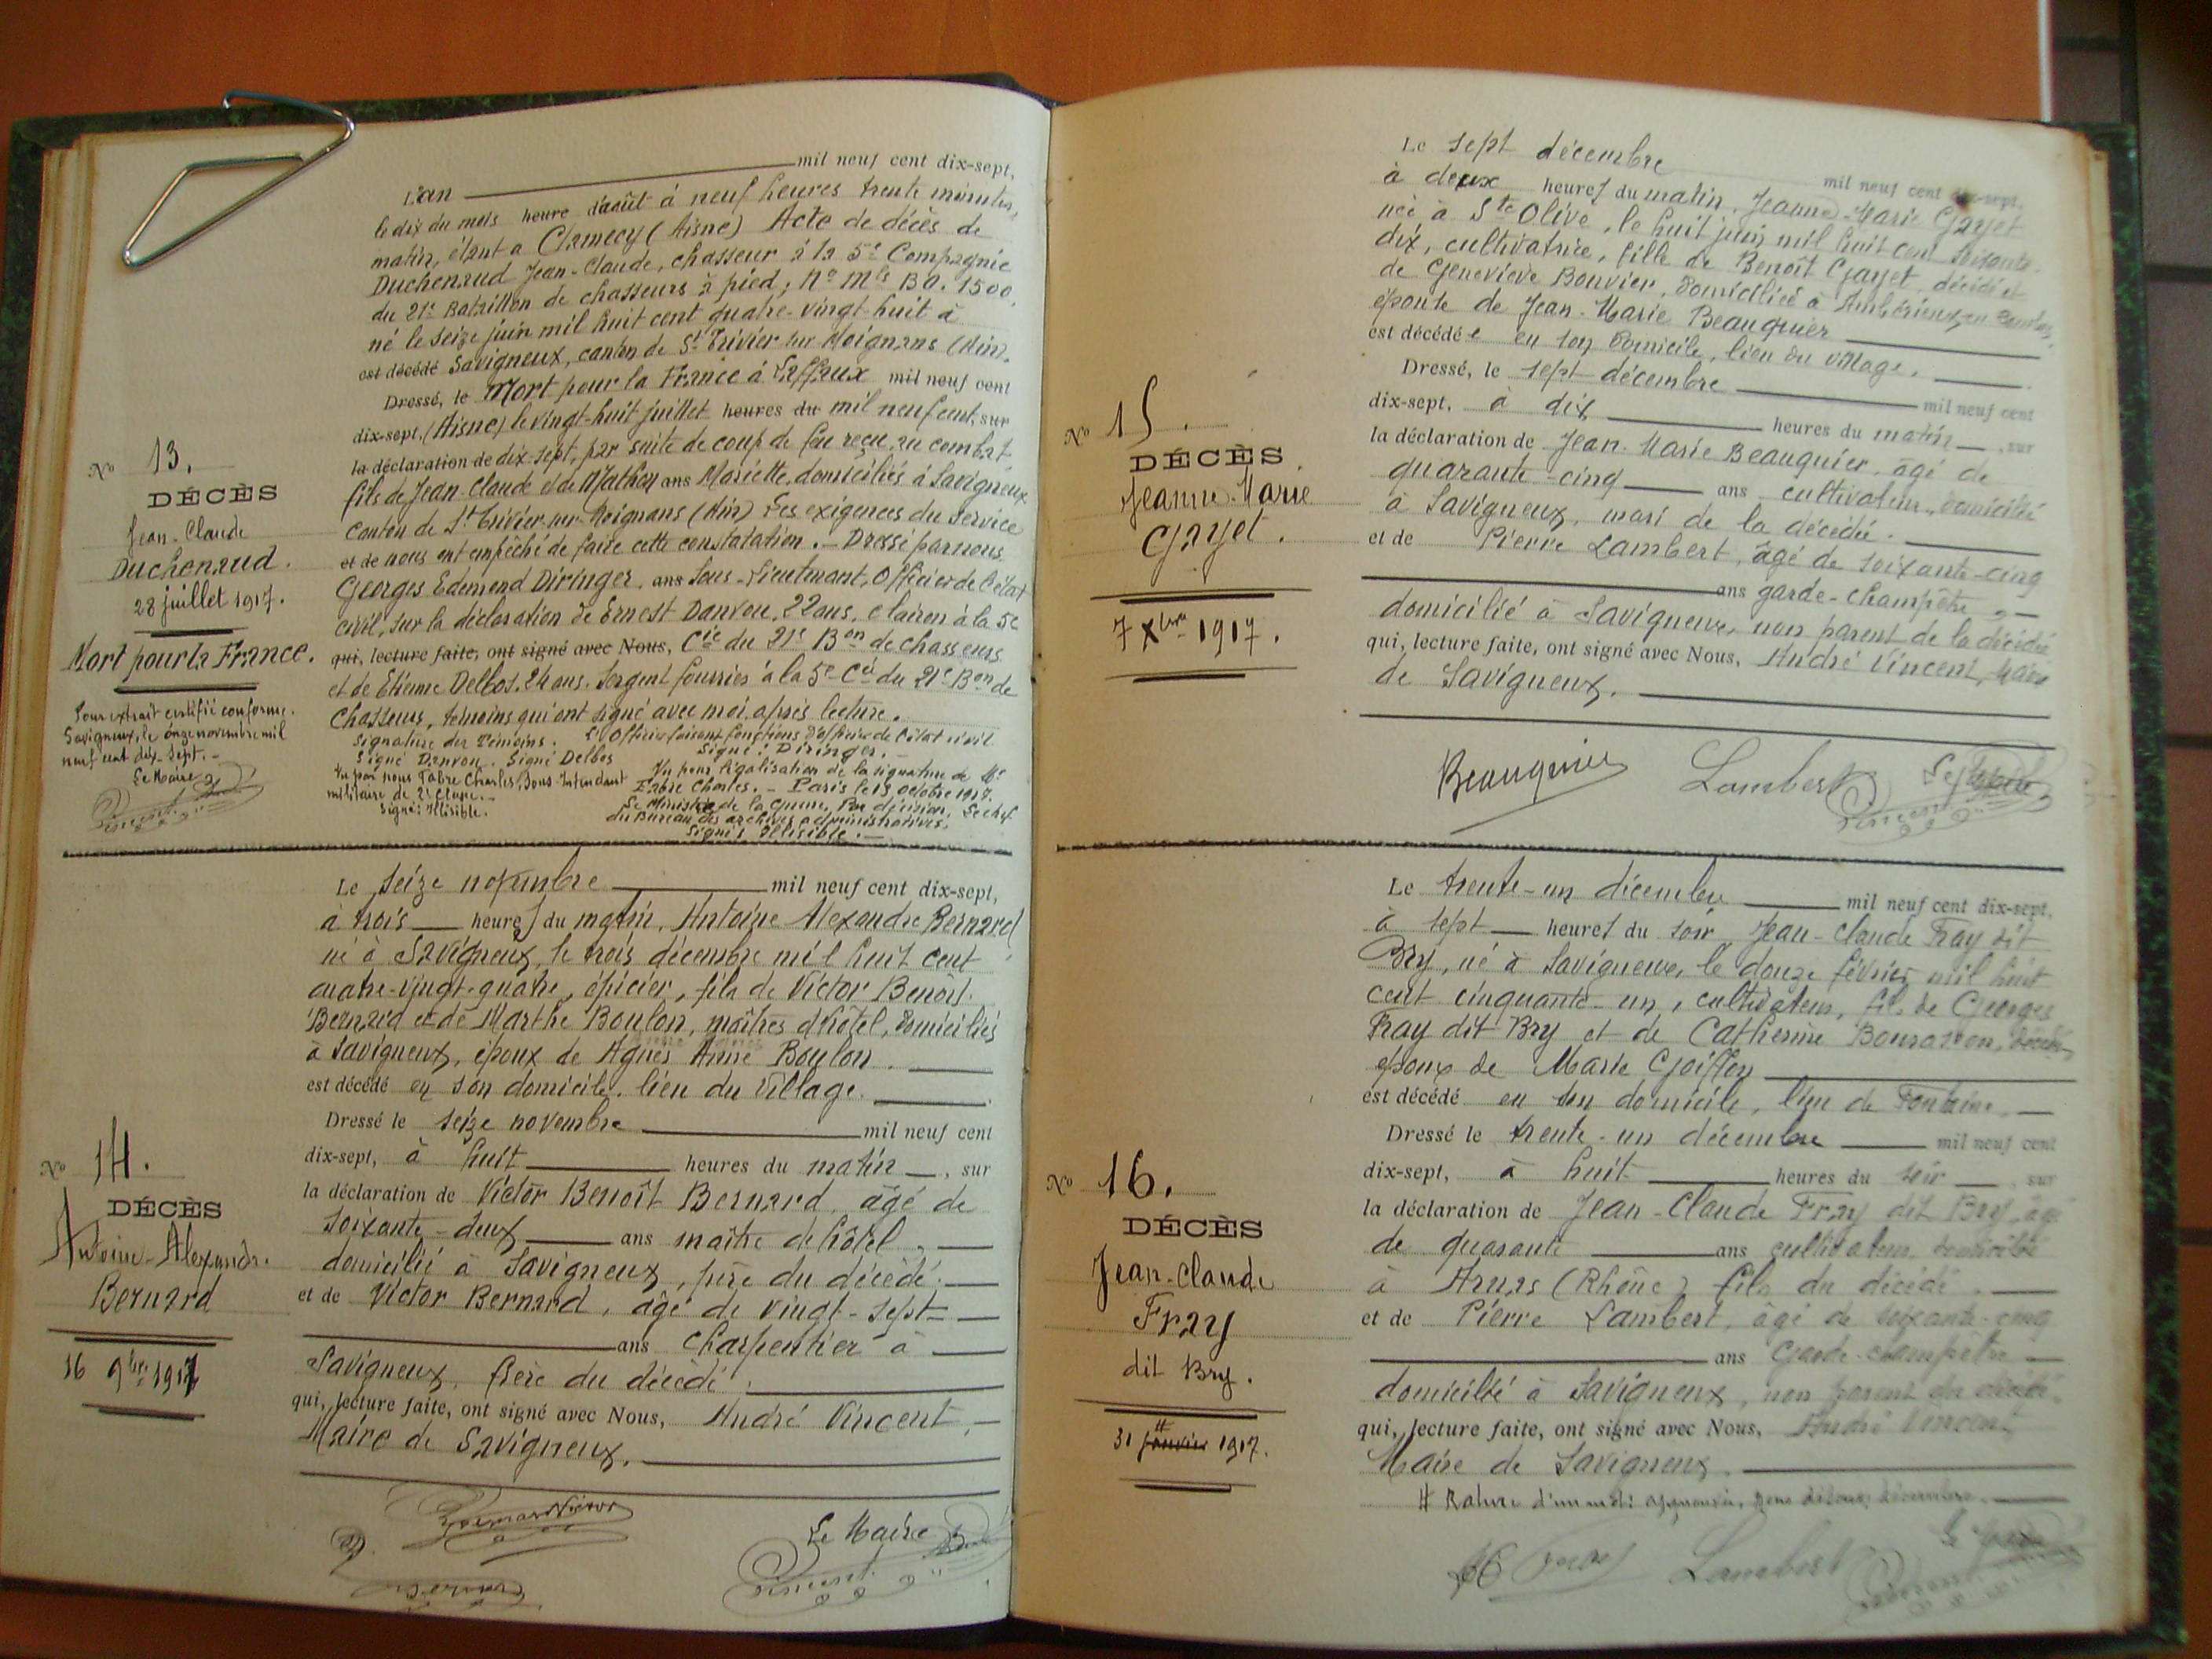 L'an mil neuf cent dix-sept,
le dix du mois heure d'août à neuf heures trente minutes,
matin, étant à Clamecy (Aisne) Acte de décès de
Duchenaud Jean-Claude, chasseur à la 5e Compagnie
du 21e Bataillon de chasseurs à pied; No Mle B0. 1500,
né le seize juin mil huit cent quatre-vingt-huit à
est décédé Savigneux, canton de St Trivier sur Moignans (Ain).
Dressé, le Mort pour la France à Laffaux mil neuf cent
dix-sept, (Aisne) le vingt-huit juillet heures du mil neuf cent, sur
la déclaration de dix-sept, par suite de coup de feu reçu au combat,
fils de Jean-Claude et de Mathon ans Mariette, domiciliés à Savigneux
canton de St Trivier-sur-Moignans (Ain) Les exigences du service
et de nous ont empêché de faire cette constatation. - Dressé par nous
Georges Edemond Diringer, ans Sous-Lieutenant, Officier de l'état
civil, sur la déclaration de Ernest Danvou, 22 ans, clairon à la 5e
qui, lecture faite, ont signé avec Nous, Cie du 21e Bon de chasseurs
et de Etienne Delbos, 24 ans, Sergent fourrier à la 5e Cie du 21e Bon de
Chasseurs, témoins qui ont signé avec moi après lecture.
Signature des Témoins. L'Officier faisant fonctions d'officier de l'état civil
Signé Danvou. Signé Delbos Signé: Diringer. -
Vu par nous Fabre Charles, Sous-Intendant
militaire de 2e Classe. -
Signé: Illisible.
Vu pour légalisation de la signature de Mr
Fabre Charles. - Paris le 13 octobre 1917.
Le Ministre de la Guerre, Par décision, Le chef
du Bureau des archives administratives.
Signé: Illisible. -
No 13.
DÉCÈS
Jean-Claude
Duchenaud.
28 juillet 1917.
Mort pour la France.
Pour extrait certifié conforme.
Savigneux, le onze novembre mil
neuf cent dix-sept. -
Le Maire
Vincent
Le seize novembre mil neuf cent dix-sept,
à trois heures du matin, Antoine Alexandre Bernard
né à Savigneux, le trois décembre mil huit cent
quatre-vingt-quatre, épicier, fils de Victor Benoît
Bernard et de Marthe Boulon, maîtres d'hôtel, domiciliés
à Savigneux, époux de Agnès Anne Boulon.
est décédé en son domicile, lieu du Village.
Dressé le seize novembre mil neuf cent
dix-sept, à huit heures du matin, sur
la déclaration de Victor Benoît Bernard, âgé de
soixante-deux ans maître d'hôtel,
domicilié à Savigneux, père du décédé.
et de Victor Bernard, âgé de vingt-sept
ans charpentier à
Savigneux, frère du décédé.
qui, lecture faite, ont signé avec Nous, André Vincent,
Maire de Savigneux.
No 14.
DÉCÈS
Antoine-Alexandre
Bernard
16 9bre 1917
Bernard Victor
Bernard
Le Maire
Vincent
Le sept décembre mil neuf cent dix-sept,
à deux heures du matin, Jeanne-Marie Gayet
née à Ste Olive, le huit juin mil huit cent soixante-
dix, cultivatrice, fille de Benoît Gayet, décédé et
de Geneviève Bouvier, domiciliée à Ambérieux-en-Dombes,
épouse de Jean-Marie Beauquier
est décédée en son domicile, lieu du village.
Dressé, le sept décembre mil neuf cent
dix-sept, à dix heures du matin, sur
la déclaration de Jean-Marie Beauquier, âgé de
quarante-cinq ans cultivateur, domicilié
à Savigneux, mari de la décédée.
et de Pierre Lambert, âgé de soixante-cinq
ans garde-champêtre,
domicilié à Savigneux, non parent de la décédée
qui, lecture faite, ont signé avec Nous, André Vincent, Maire
de Savigneux.
No 15.
DÉCÈS
Jeanne-Marie
Gayet.
7 Xbre 1917.
Beauquier Lambert Le Maire
Vincent
Le trente-un décembre mil neuf cent dix-sept,
à sept heures du soir Jean-Claude Fray dit
Bry, né à Savigneux, le douze février mil huit
cent cinquante-un, cultivateur, fils de Georges
Fray dit Bry et de Catherine Bourasson, décédés,
époux de Marie Goiffon
est décédé en son domicile, lieu de Fontaine,
Dressé le trente-un décembre mil neuf cent
dix-sept, à huit heures du soir, sur
la déclaration de Jean-Claude Fray dit Bry, âgé
de quarante ans cultivateur domicilié
à Arnas (Rhône) fils du décédé.
et de Pierre Lambert, âgé de soixante-cinq
ans Garde-champêtre
domicilié à Savigneux, non parent du décédé.
qui, lecture faite, ont signé avec Nous, André Vincent
Maire de Savigneux.
# Rature d'un mot: décembre.
No 16.
DÉCÈS
Jean-Claude
Fray
dit Bry.
31 janvier 1917.
Lambert
Vincent